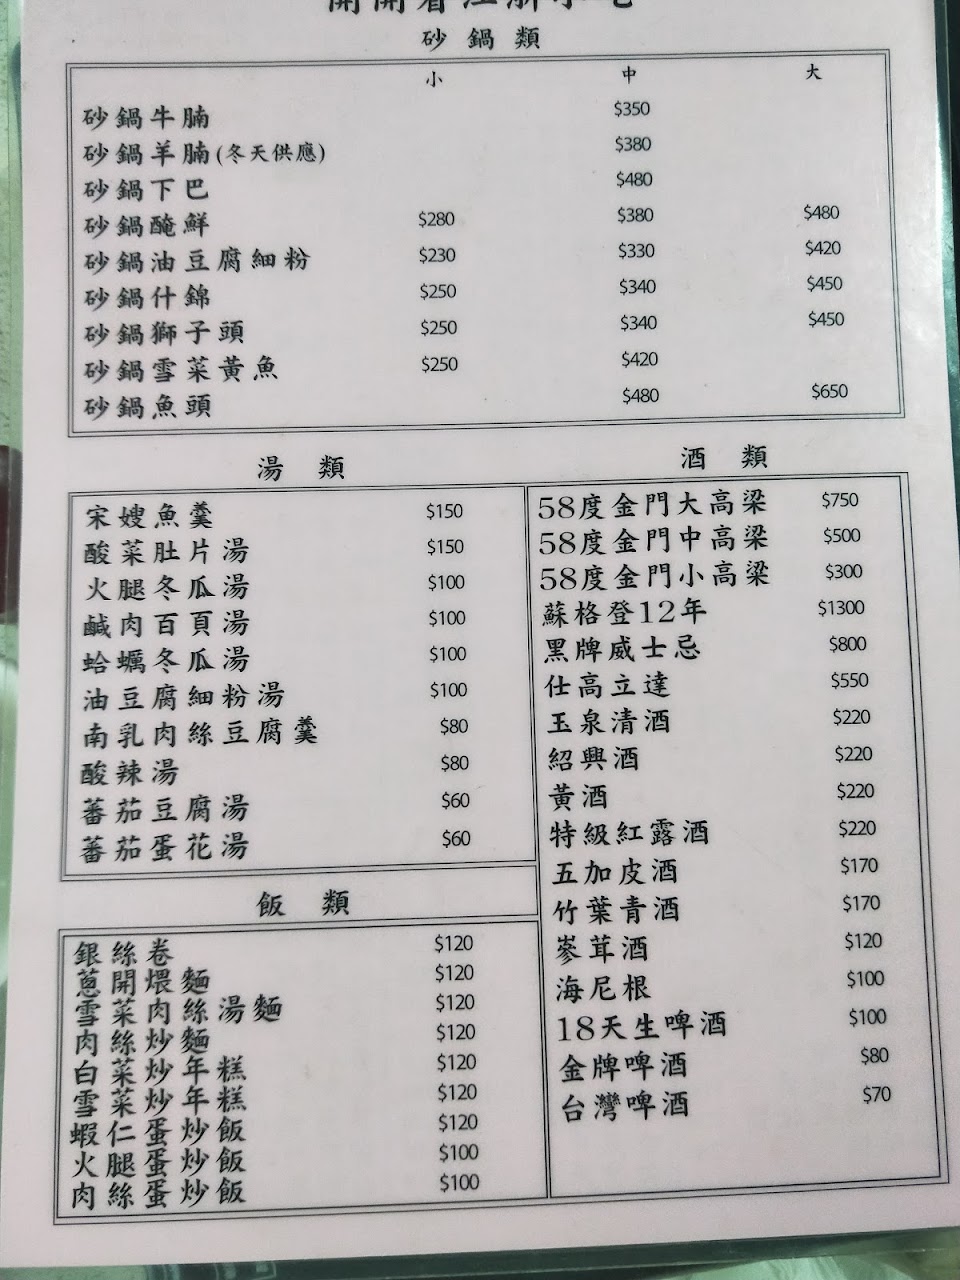 砂鍋類
小 中 大
砂鍋牛腩 $350
砂鍋羊腩(冬天供應) $380
砂鍋下巴 $480
砂鍋醃鮮 $280 $380 $480
砂鍋油豆腐細粉 $230 $330 $420
砂鍋什錦 $250 $340 $450
砂鍋獅子頭 $250 $340 $450
砂鍋雪菜黃魚 $250 $420
砂鍋魚頭 $480 $650
湯類
宋嫂魚羹 $150
酸菜肚片湯 $150
火腿冬瓜湯 $100
鹹肉百頁湯 $100
蛤蠣冬瓜湯 $100
油豆腐細粉湯 $100
南乳肉絲豆腐羹 $80
酸辣湯 $80
蕃茄豆腐湯 $60
蕃茄蛋花湯 $60
飯類
銀絲卷 $120
蔥開煨麵 $120
雪菜肉絲湯麵 $120
肉絲炒麵 $120
白菜炒年糕 $120
雪菜炒年糕 $120
蝦仁蛋炒飯 $120
火腿蛋炒飯 $100
肉絲蛋炒飯 $100
酒類
58度金門大高梁 $750
58度金門中高梁 $500
58度金門小高梁 $300
蘇格登12年 $1300
黑牌威士忌 $800
仕高立達 $550
玉泉清酒 $220
紹興酒 $220
黃酒 $220
特級紅露酒 $220
五加皮酒 $170
竹葉青酒 $170
蔘茸酒 $120
海尼根 $100
18天生啤酒 $100
金牌啤酒 $80
台灣啤酒 $70